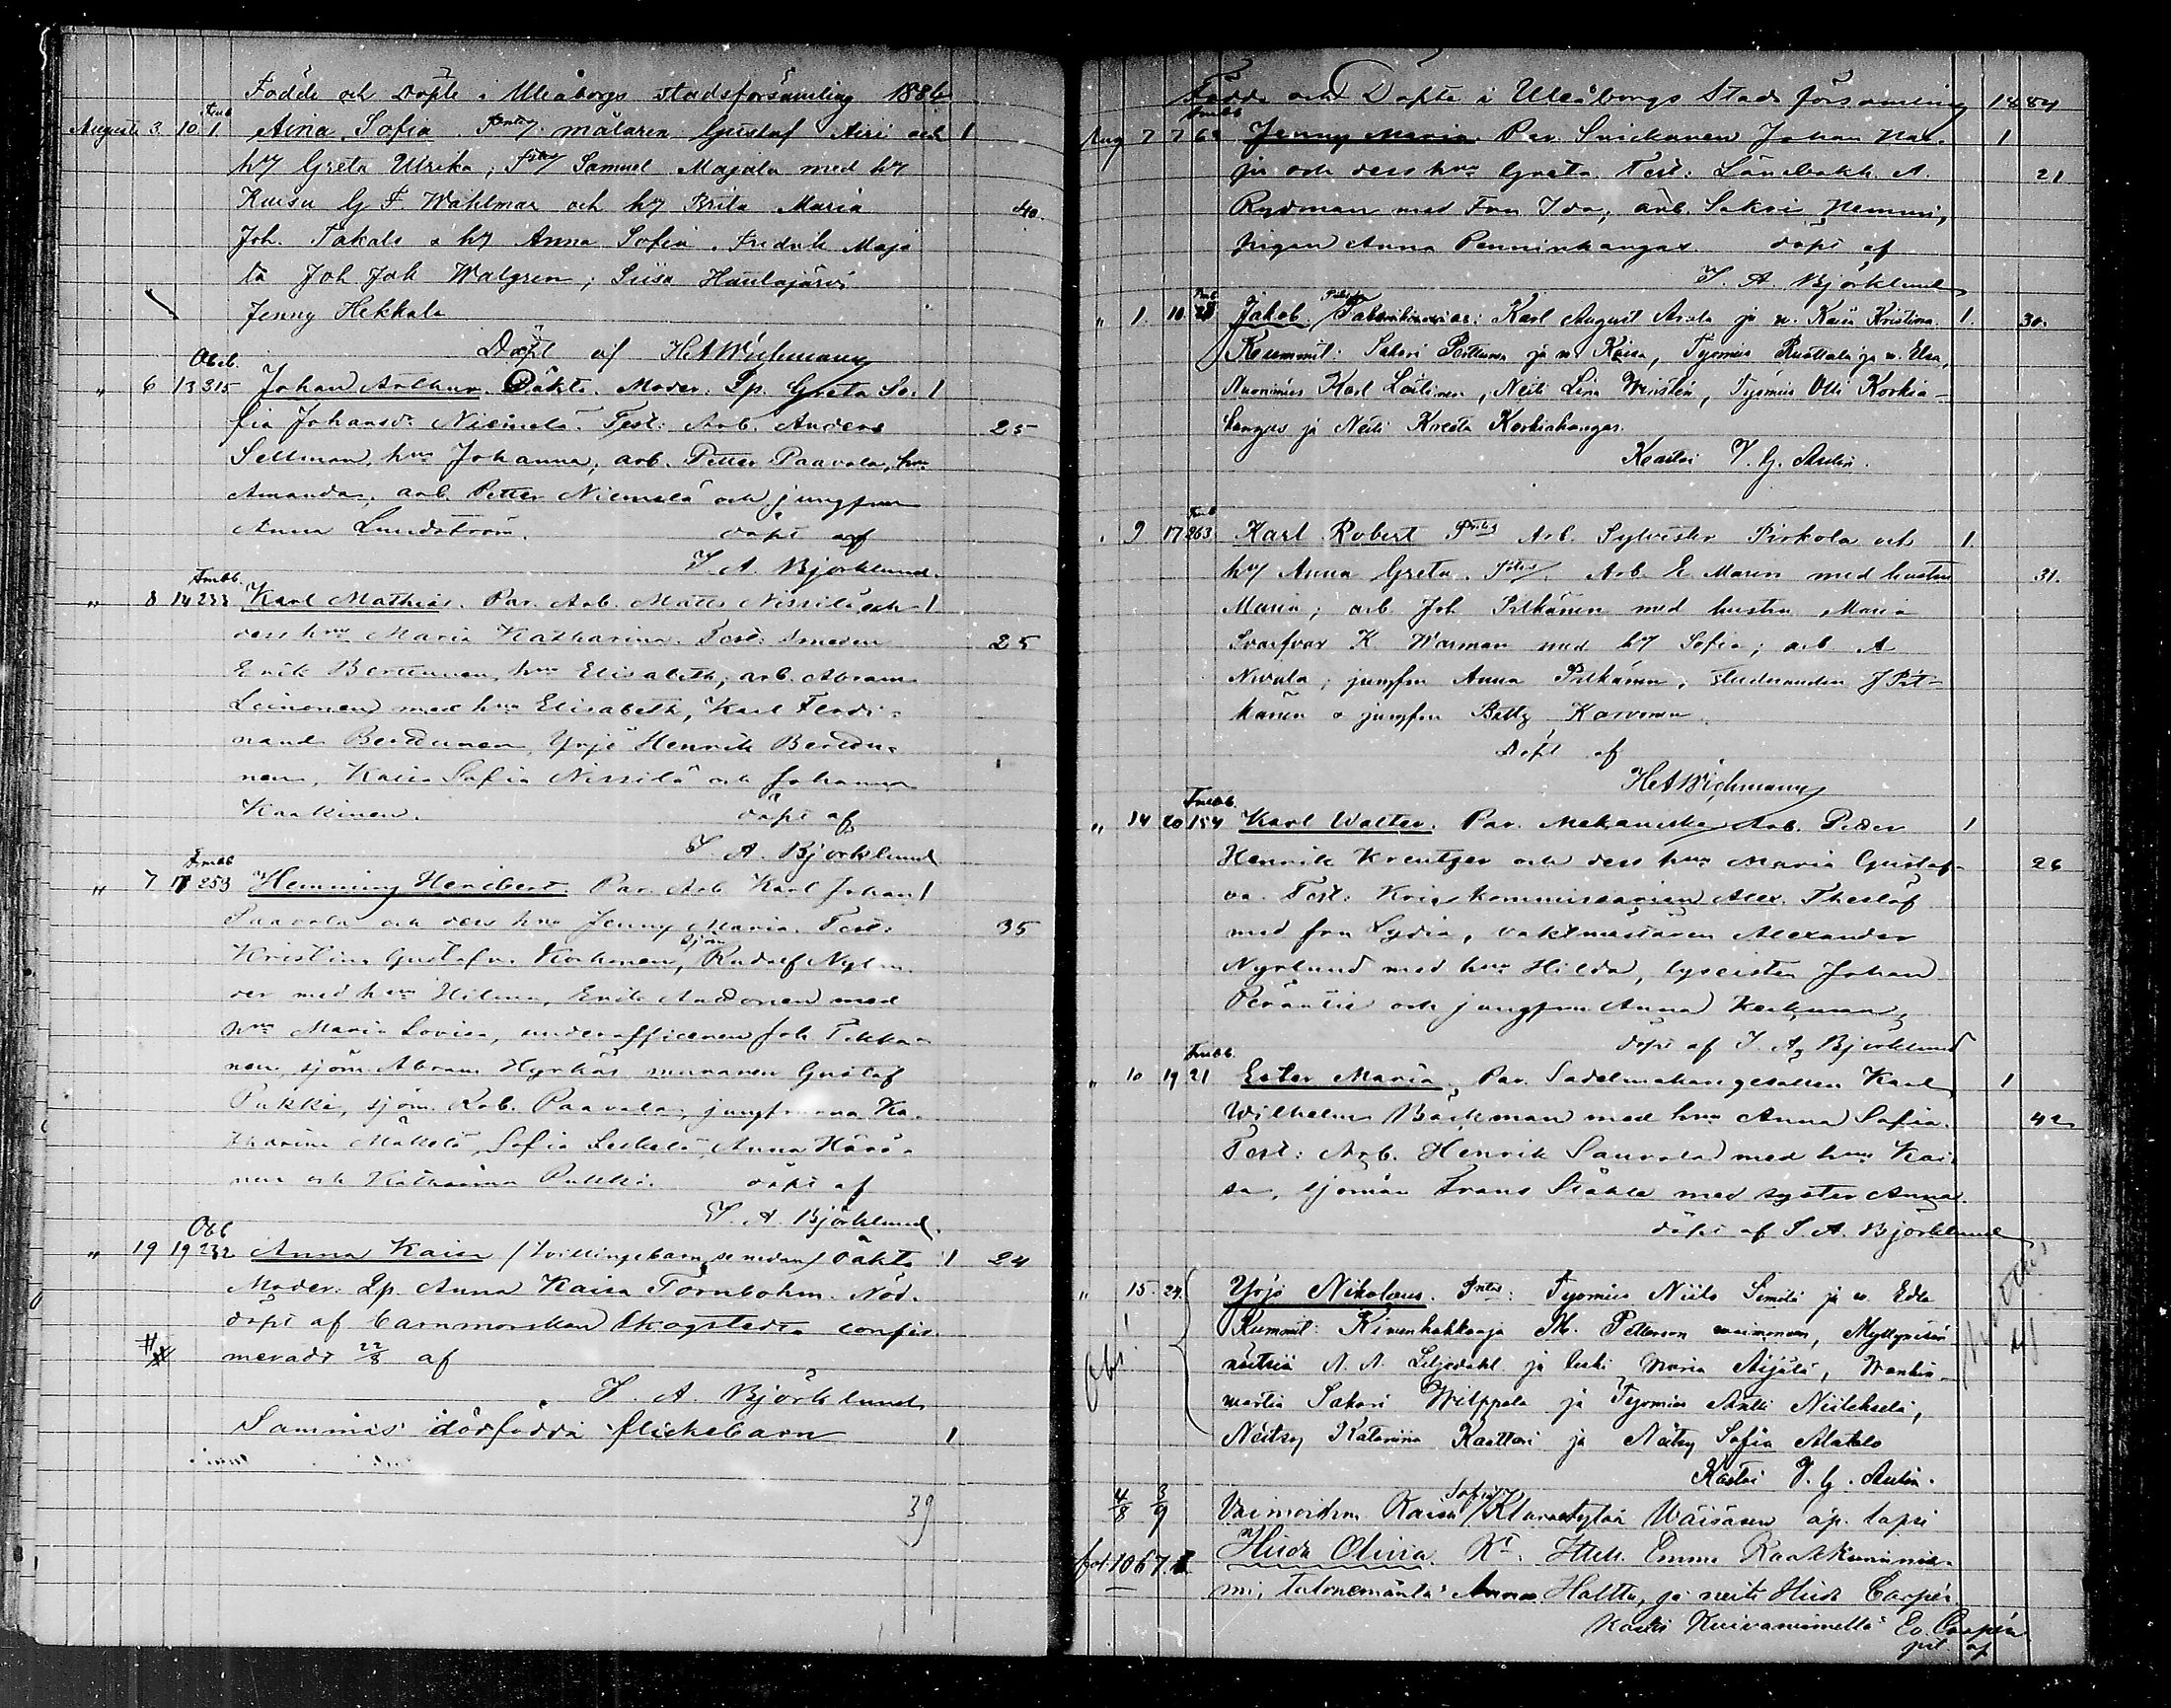 Födde och Döpte i Uleåborgs stadsförsamling 1884
Augusti 3. 10. 1 Aina Sofia. målaren Gustaf Airi och 1
Greta Ulrika; Samuel Majala med
G F. Wahlman och Brita Maria 40.
Joh. Takalo o Anna Sofia. Fredrik Maja
la Joh Joh Walgren; Liisa Haulajärvi
Jenny Hekkala
Döpt af HAWichmann
Obeb.
" 6 13 315 Johan Arthur. Oäkta. Moder: Lp. Greta So- 1
fia Johansdr Niemelä. Test: Arb. Anders 25
Sellman, hru Johanna; arb. Petter Paavola, hru
Amanda; arb. Petter Niemelä och jungfrun
Anna Lundström. döpt af
J. A. Björklund.
Fmbb.
" 8 14 233 Karl Mathias. Par. Arb. Matts Nissilä och 1
dess hru Maria Katharina. Test: Smeden 25
Erik Berttunen, hru Elisabeth; arb. Abram
Leinonen med hru Elisabeth, Karl Ferdi-
nand Berttunen, Yrjö Henrik Berttu-
nen, Kaisa Sofia Nissilä och Johanna
Kaakinen. döpt af
J. A. Björklund
Fmbb
" 7 17 253 Hemming Heribert. Par. Arb. Karl Johan 1
Paavola och dess hru Jenny Maria. Test: 35
Kristian Gustafs. Korhonen, sjöm Rudolf Nylan-
der med hru Hilma, Erik Anttonen med
hru Maria Lovisa, underofficeren Joh. Tikka-
nen, sjöm. Abram Hyrkäs, muraren Gustaf
Pukki, sjöm. Rob. Paavola, jungfrurna Ka-
tharina Mäkelä, Sofia Leskelä, Anna Härö-
nen och Katharina Pukki. döpt af
J. A. Björklund.
Obb
" 19 19 232 Anna Kaisa (tvillingebarn se nedan) Oäkta 1 24
Moder: Lp. Anna Kaisa Törnbohm. Nöd-
döpt af barnmorskan Skogstedt, confir-
meradt 22/8 af
J. A. Björklund
Sammas dödfödda flickebarn 1
39
Födde och Döpte i Uleåborgs Stads församling 1884
Fmbb
Aug 7 7 62 Jenny Maria. Par. Snickaren Johan Har- 1
ju och dess hru Greta. Test: Länsbokh. A. 21
Rydman med Fru Ida; arb. Sakri Nemmi,
pigan Anna Penninkangas. döpt af
J. A. Björklund
" 1. 10 28 Jakob. Karl August Arola ja v. Kaisa Kristina. 1. 30.
Kummit: Sakari Perttunen ja v. Kaisa, Työmies Ruottala ja v. Elsa,
Nuorimies Karl Laitinen, Neiti Lina Winsten, Työmies Olli Korkia-
kangas ja Neiti Kreeta Korkiakangas.
Kastoi V. G. Aulin.
" 9 17 263 Karl Robert Arb. Sylvester Pirkola och 1.
Anna Greta. Arb. E. Maren med hustru 31.
Maria; arb Joh Pitkänen med hustru Maria
Svarfvar K. Warman med Sofia; arb. A
Nivala; jungfru Anna Pitkänen, studeranden J Pit-
känen o jungfru Betty Karvonen.
Döpt af
HAWichmann
Fmbb.
" 14 20 154 Karl Walter. Par. Mekaniske Arb. Petter 1
Henrik Kreutzer och dess hru Maria Gustaf- 26
va. Test: Krigskommissarien Alex. Theslöf
med fru Lydia, vaktmästaren Alexander
Nyrlund med hru Hilda, lyceisten Johan
och jungfru Anna
döpt af J. A. Björklund
Fmbb.
" 10 19 21 Ester Maria. Par. Sadelmakaregesällen Karl 1
Wilhelm Bäckman med hru Anna Sofia. 42
Test: Arb. Henrik Saurola med hru Kai-
sa, sjöman Frans Ståhle med syster Anna.
döpt af J. A. Björklund
" 15. 24 Yrjö Nikolaus. Työmies Niilo Similä ja v. Edla
Kummit: Kivenhakkaaja M. Petterson vaimoneen, Myllyrisän
neitsiä A. A. Liljedahl ja leski Maria Äijälä, Wankin-
vartia Sakari Wilppola ja Työmies Antti Niilekselä,
Neitsy Katariina Karttari ja Neitsy Sofia Matelo
Kastoi V. G. Aulin.
4/8 3/9 Vaimoihm. Kaisa Sofia Väisäsen äp. lapsi
fol. 1067. Hilda Olivia. Emma
mi, talonemäntä Anna Haltta, ja neiti Hilda Carpén.
Kasti Kuivaniemellä Ev. Carpén